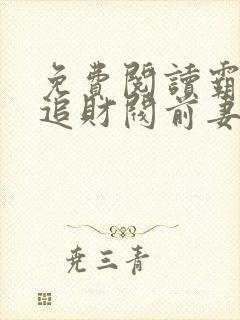 免費閱讀霸
追財閥前妻
尭三青